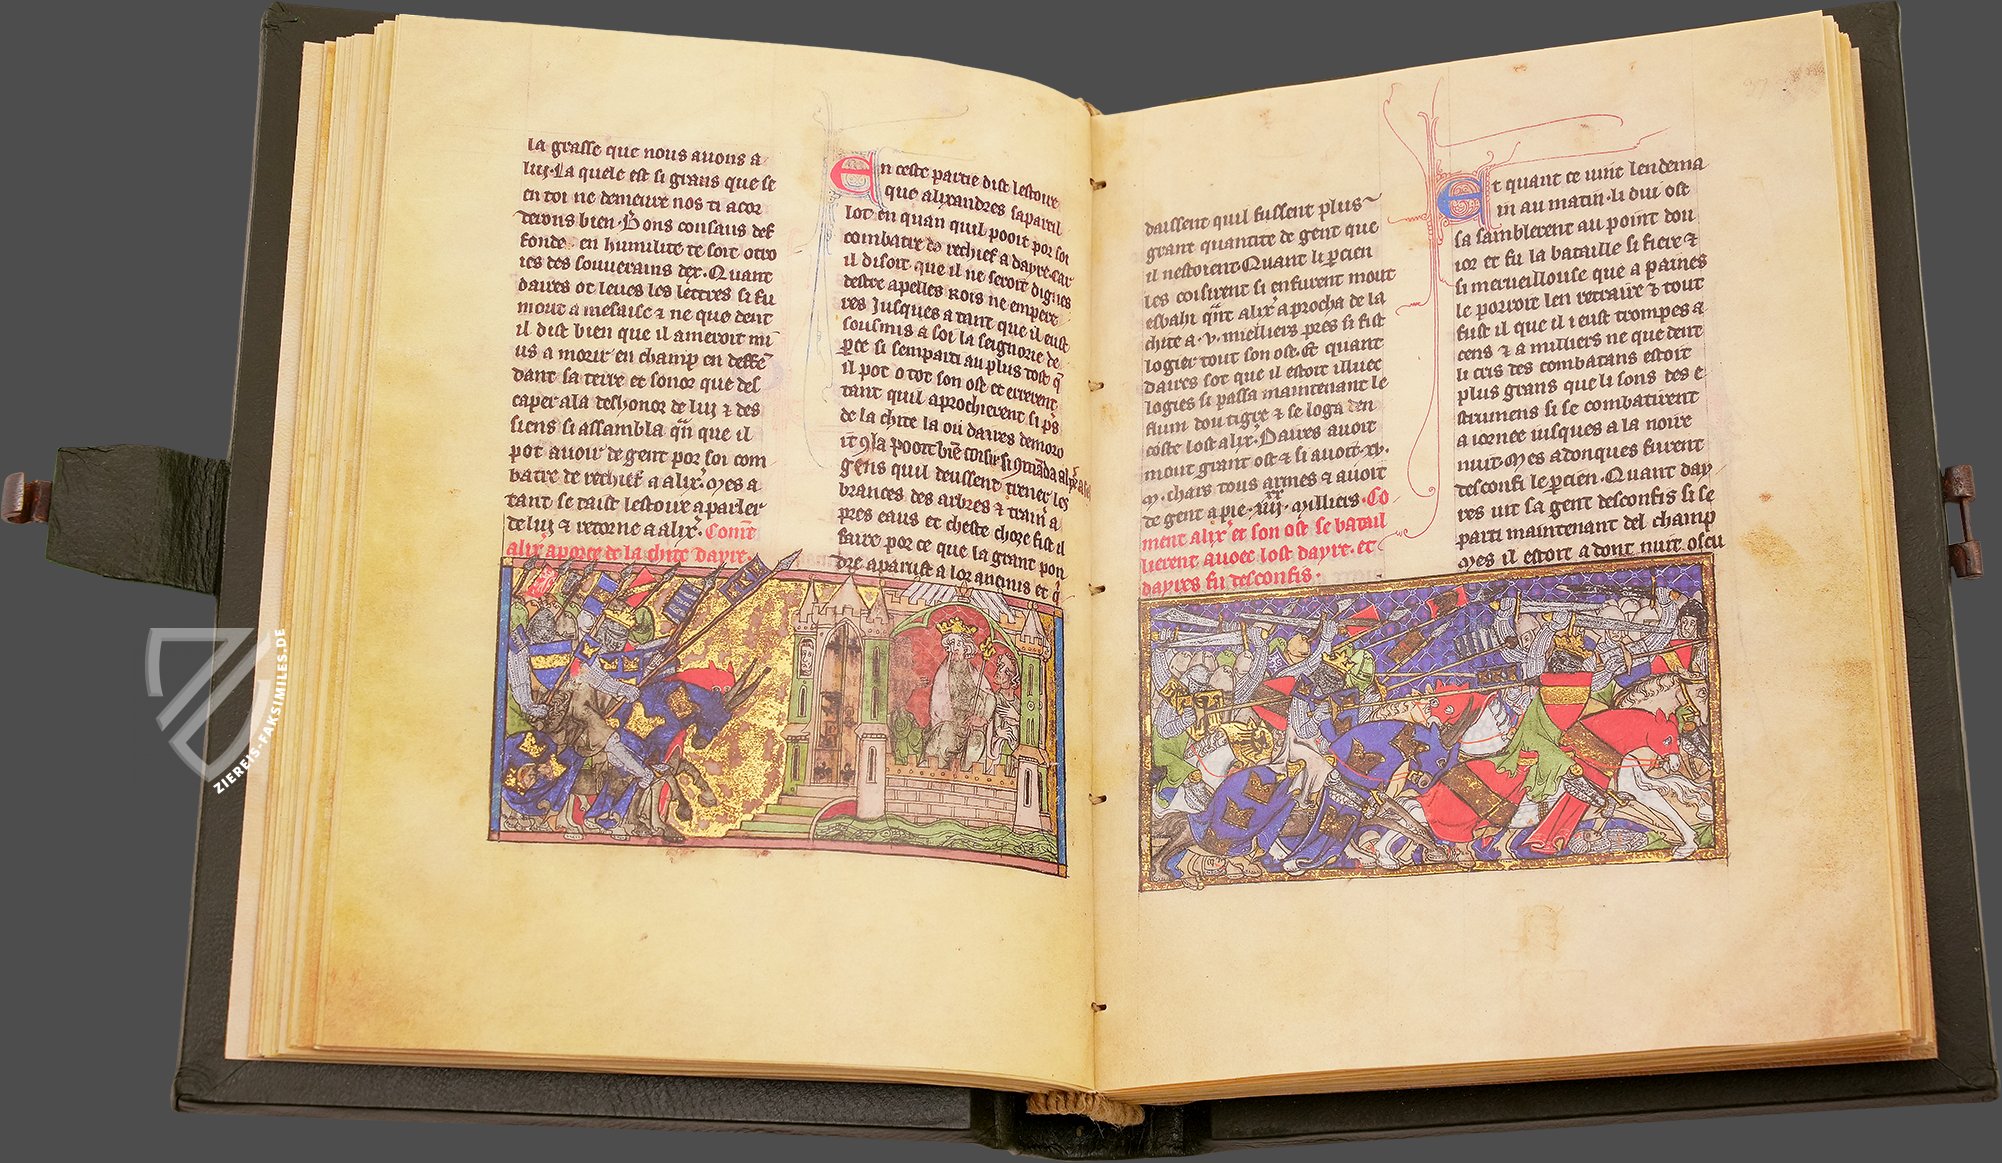 la grasse que nous auons a
luy. La quele est si grans que se
en toi ne demeure nos ti acor
derons bien. Dons consaus def
fonde en humilite te soit otro
ies des souuerains dex. Quant
daires ot leues les lettres si fu
mout a mesaise ⁊ ne que dent
il dist bien que il ameroit mi
us a morir en champ en deffē
dant sa terre et sonor que des
caper ala deshonor de luy ⁊ des
siens si assambla qñ que il
pot auoir de gent por soi com
batre de rechief a alix. Mes a
tant se taist lestoire a parler
de luy ⁊ retorne a alix. Comēt
alix aproce de la chite dayre.
En ceste partie dist lestoire
que alixandres sapareil
lot en quan quil pooit por soi
combatre de rechief a dayre. Car
il disoit que il ne seroit dignes
destre apelles Rois ne empere
res Jusques a tant que il eust
sousmis a soi la seignorie de
perce si semparti au plus tost q̄
il pot o tot son ost et errerent
tant quil aprochierent si ps
de la chite la ou daires demoro
it q̄ la pooit biē coisir si
gens quil deussent trener les
brances des arbres ⁊ train a
pres eaus et cheste chose fist il
faire por ce que la grant pon
dre aparust a lor anemis et q̄
daissent quil fussent plus
grant quantite de gent que
il nestoient Quant li percien
les coisirent si enfurent mout
esbahi qñt alix aprocha de la
chite a .v. milliers pres si fist
logier tout son ost. Et quant
daires sot que il estoit illuec
logies si passa maintenant le
flum dou tigre ⁊ se loga den
coste lost alix. Daires auoit
mout grant ost ⁊ si auoit .xv.
.m. chars tous armes ⁊ auoit
de gent a pie .iiij. xx milliers. Co
ment alix et son ost se batail
lierent auoec lost dayre. et
dayres fu desconfis.
Et quant ce uint lendema
in au matin. li dui ost
sa samblerent au point dou
ior et fu la bataille si fiere ⁊
si merueillouse que a paines
le porroit len retraire ⁊ tout
fust il que il i eust trompes a
cens ⁊ a milliers ne que dent
li cris des combatans estoit
plus grans que li sons des e
strumens si se combatirent
a iornee iusques a la noire
nuit. Mes adonques furent
desconfi le percien. Quant day
res uit sa gent desconfis si se
parti maintenant del champ
Mes il estoit adont nuit oscu
ZIEREIS-FAKSIMILES.DE